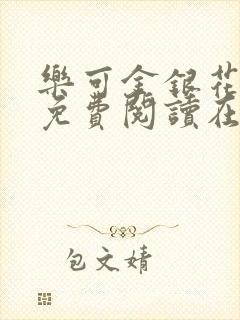 樂可金銀花
免費閱讀在
包文婧